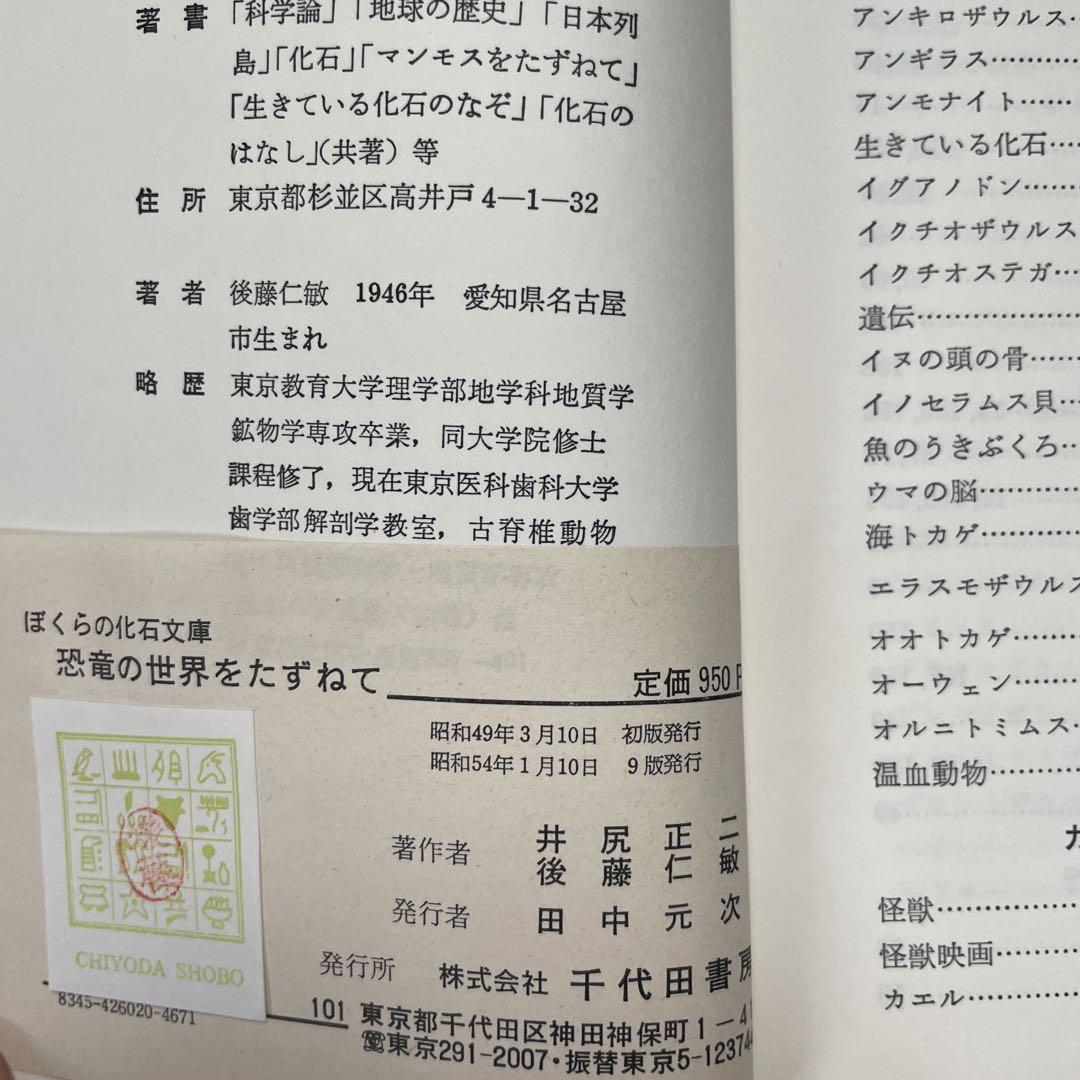 著書 「科学論」「地球の歴史」「日本列
島」「化石」「マンモスをたずねて」
「生きている化石のなぞ」「化石の
はなし」(共著) 等
住所 東京都杉並区高井戸4—1—32
著者 後藤仁敏 1946年 愛知県名古屋
市生まれ
略歴 東京教育大学理学部地学科地質学
鉱物学専攻卒業，同大学院修士
課程修了，現在東京医科歯科大学
歯学部解剖学教室，古脊椎動物
ぼくらの化石文庫
恐竜の世界をたずねて
定価 950
昭和49年3月10日 初版発行
昭和54年1月10日 9版発行
著作者 井尻正二
後藤仁敏
発行者 田中元次
発行所 株式会社 千代田書房
101 東京都千代田区神田神保町1－4
☎東京291-2007・振替東京5-123744
CHIYODA SHOBO
8345-426020-4671
アンキロザウルス…
アンギラス………
アンモナイト……
生きている化石…
イグアノドン……
イクチオザウルス
イクチオステガ…
遺伝………………
イヌの頭の骨……
イノセラムス貝…
魚のうきぶくろ…
ウマの脳…………
海トカゲ…………
エラスモザウルス
オオトカゲ………
オーウェン………
オルニトミムス…
温血動物…………
カ
怪獣………………
怪獣映画…………
カエル……………